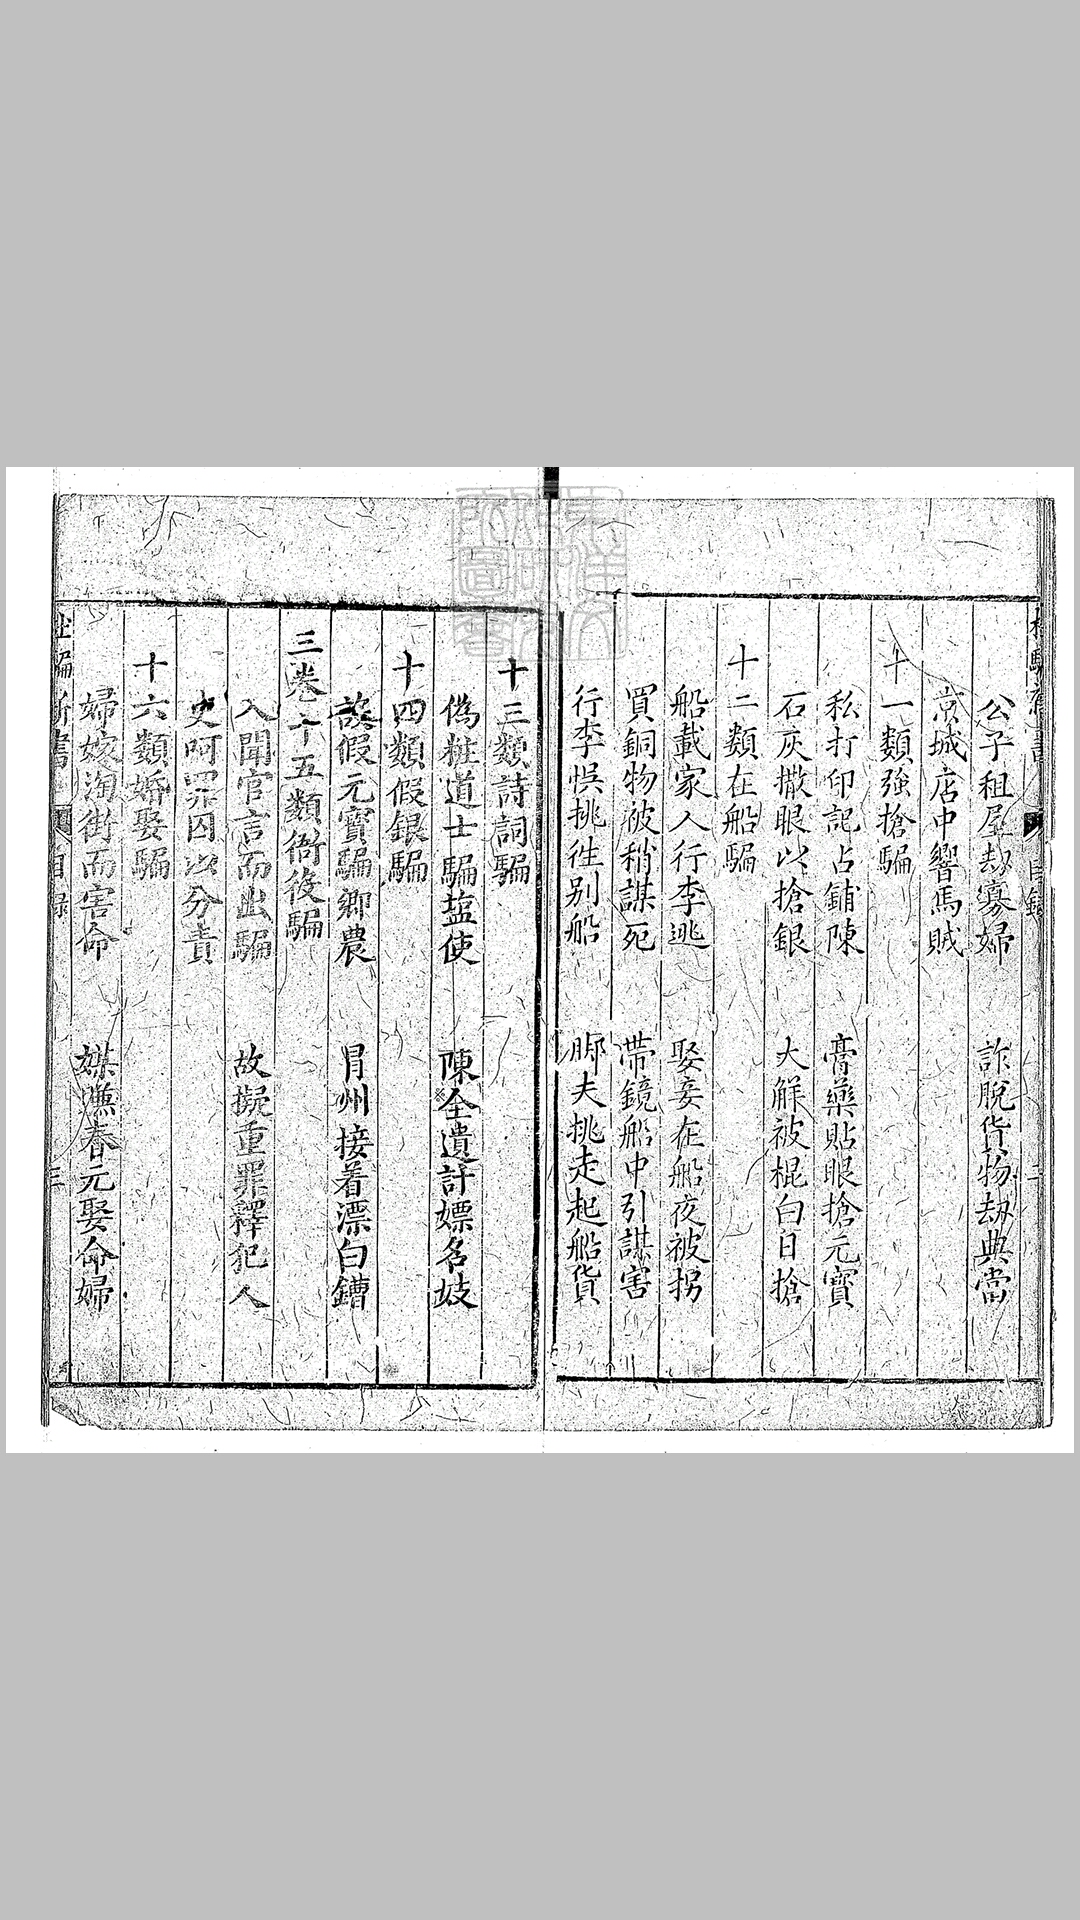 公子租屋劫寡婦　詐脫貨物劫典當
京城店中響馬賊
十一類強搶騙
私打印記占鋪陳　膏藥貼眼搶元寶
石灰撒眼以搶銀　大解被棍白日搶
十二類在船騙
船載家人行李逃　娶妾在船夜被拐
買銅物被稍謀死　帶鏡船中引謀害
行李悞挑往別船　脚夫挑走起船貨
十三類詩詞騙
偽粧道士騙塩使　陳全遺計嫖名妓
十四類假銀騙
設假元寶騙鄉農　冒州接着漂白鏪
三卷十五類衙役騙
入聞官言而出騙　故擬重罪釋犯人
吏呵罪囚以分責
十六類婚娶騙
婦嫁淘街而害命　媒嫌春元娶命婦
杜騙新書　目錄　三